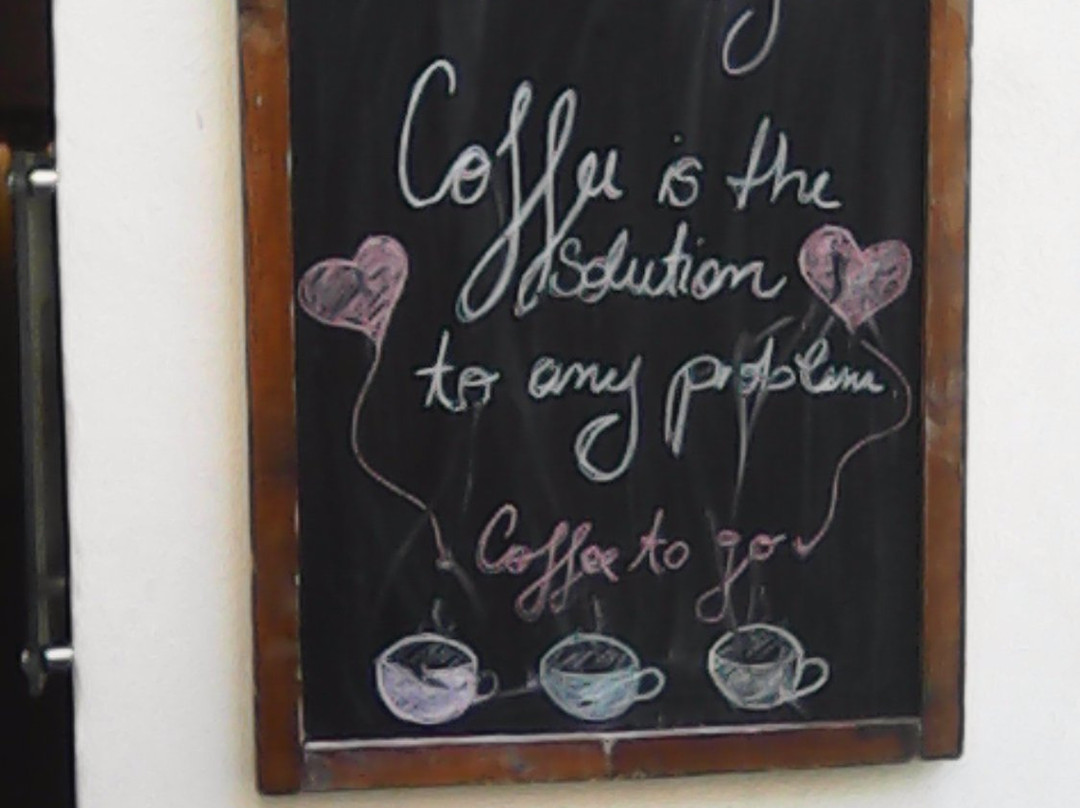 Coffee is the
solution
to any problem
Coffee to go